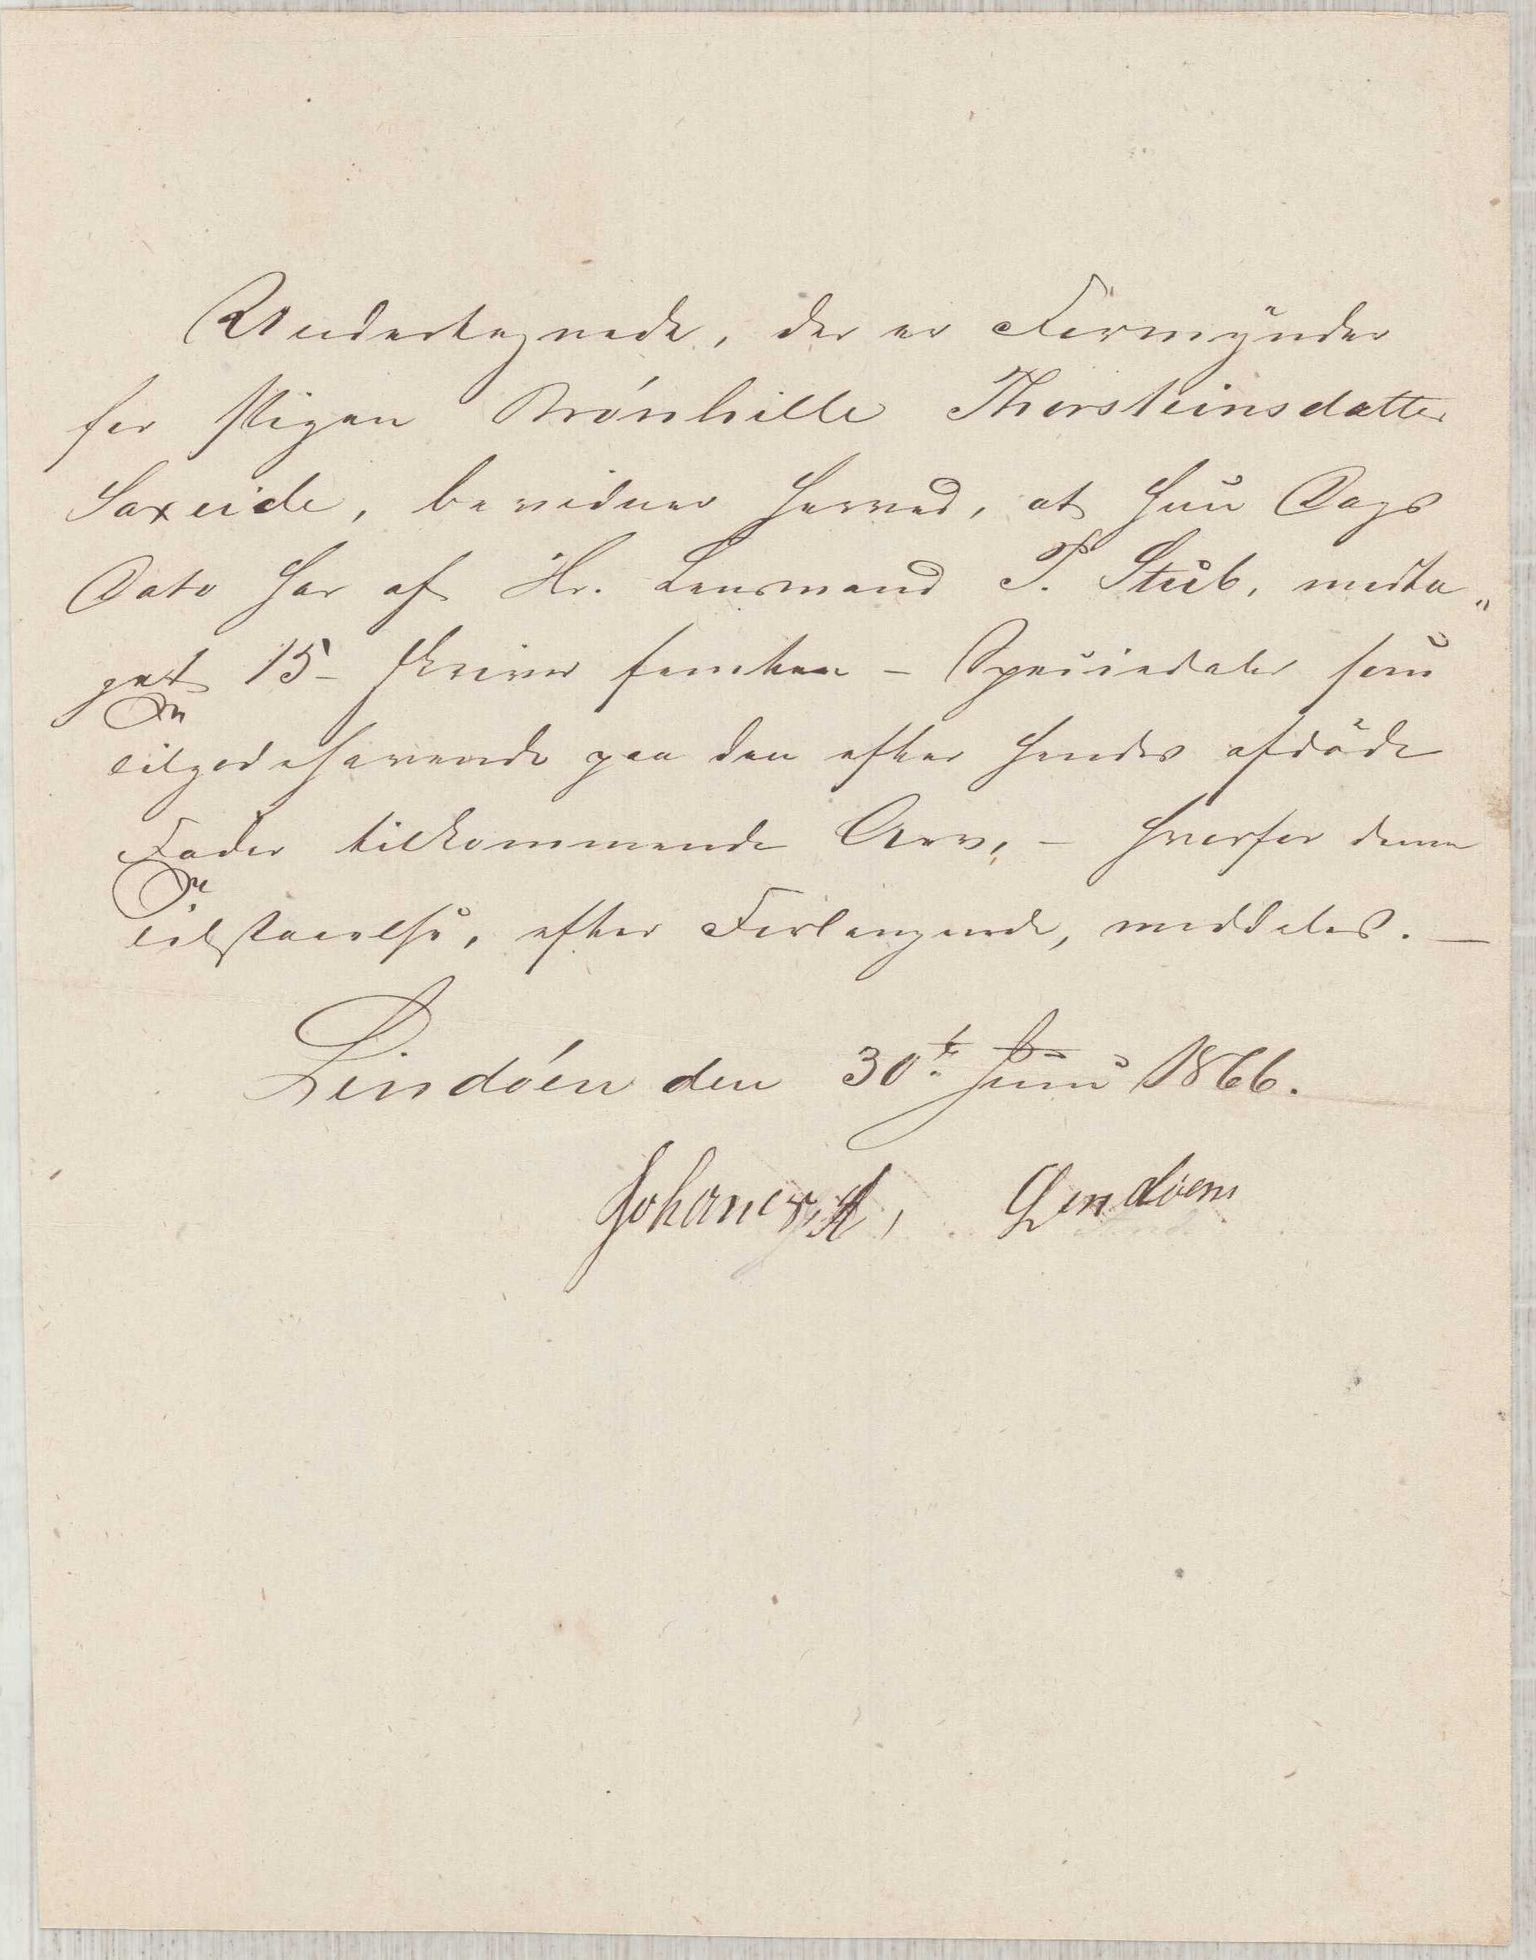 Undertegnede, der er Formynder
for Pigen Brónhilde Thorsteinsdatter
Saxeide, bevidner herved, at hun Dags
Dato har af Hr. Lensmand T. Stub, modta„
get 15 – skriver femten – Speciedaler som
Tilgodehavende paa den efter hendes afdöde
Fader tilkommende Arv, – hvorfor denne
Tilstaaelse, efter Forlangende, meddeles. –
Lindóen den 30te Juni 1866.
Johanes, A, Lendóen